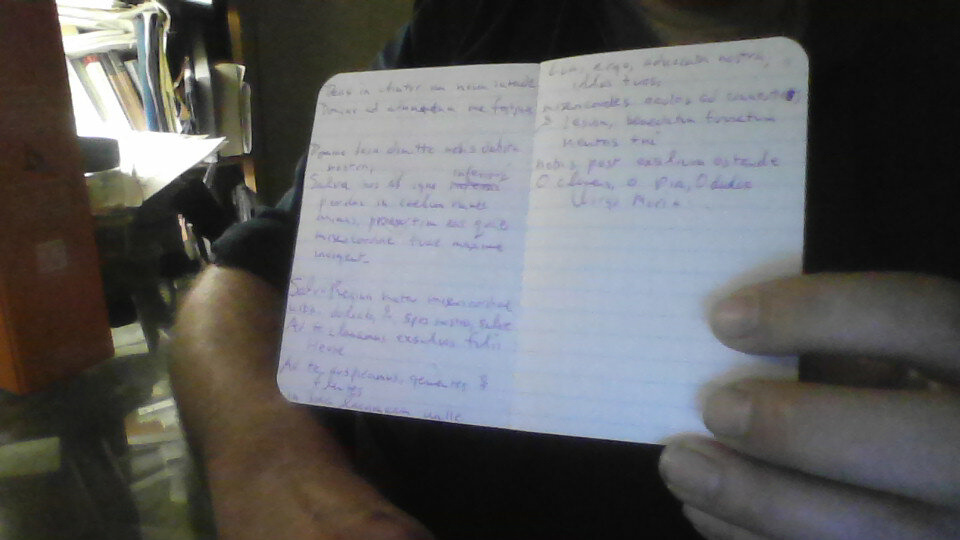 Deus in
Domine ad me
Domine Jesu dimitte nobis debita
nostra, inferiori
Salva nos ab igne
perduc in coelum omnes
animas, praesertim eas quae
misericordiae tuae maxime
indigent.
Salve Regina mater misericordiae
vita, dulcedo, & spes nostra, salve
Ad te clamamus exsules filii
Hevae
Ad te suspiramus, gementes &
flentes
in hac lacrimarum valle
Eia, ergo, advocata nostra,
illos tuos
misericordes oculos ad
& Jesum, benedictum fructum
ventris tui
nobis post exsilium ostende
O clemens, o pia, O dulcis
Virgo Maria